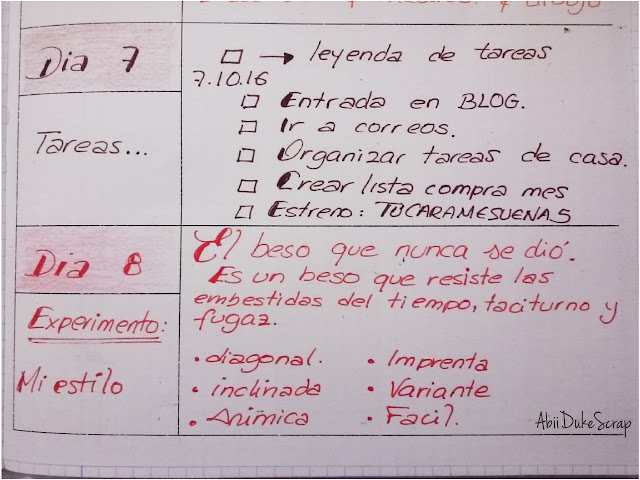 Dia 7
□ → leyenda de tareas
7.10.16
□ Entrada en BLOG.
□ Ir a correos.
Tareas...
□ Organizar tareas de casa.
□ Crear lista compra mes
□ Estreno: TUCARAMESUENAS
Dia 8
El beso que nunca se dió.
Es un beso que resiste las
embestidas del tiempo, taciturno y
fugaz.
Experimento:
Mi estilo
• diagonal.
• inclinada
• Anímica
• Imprenta
• Variante
• Facil.
AbiiDukeScrap